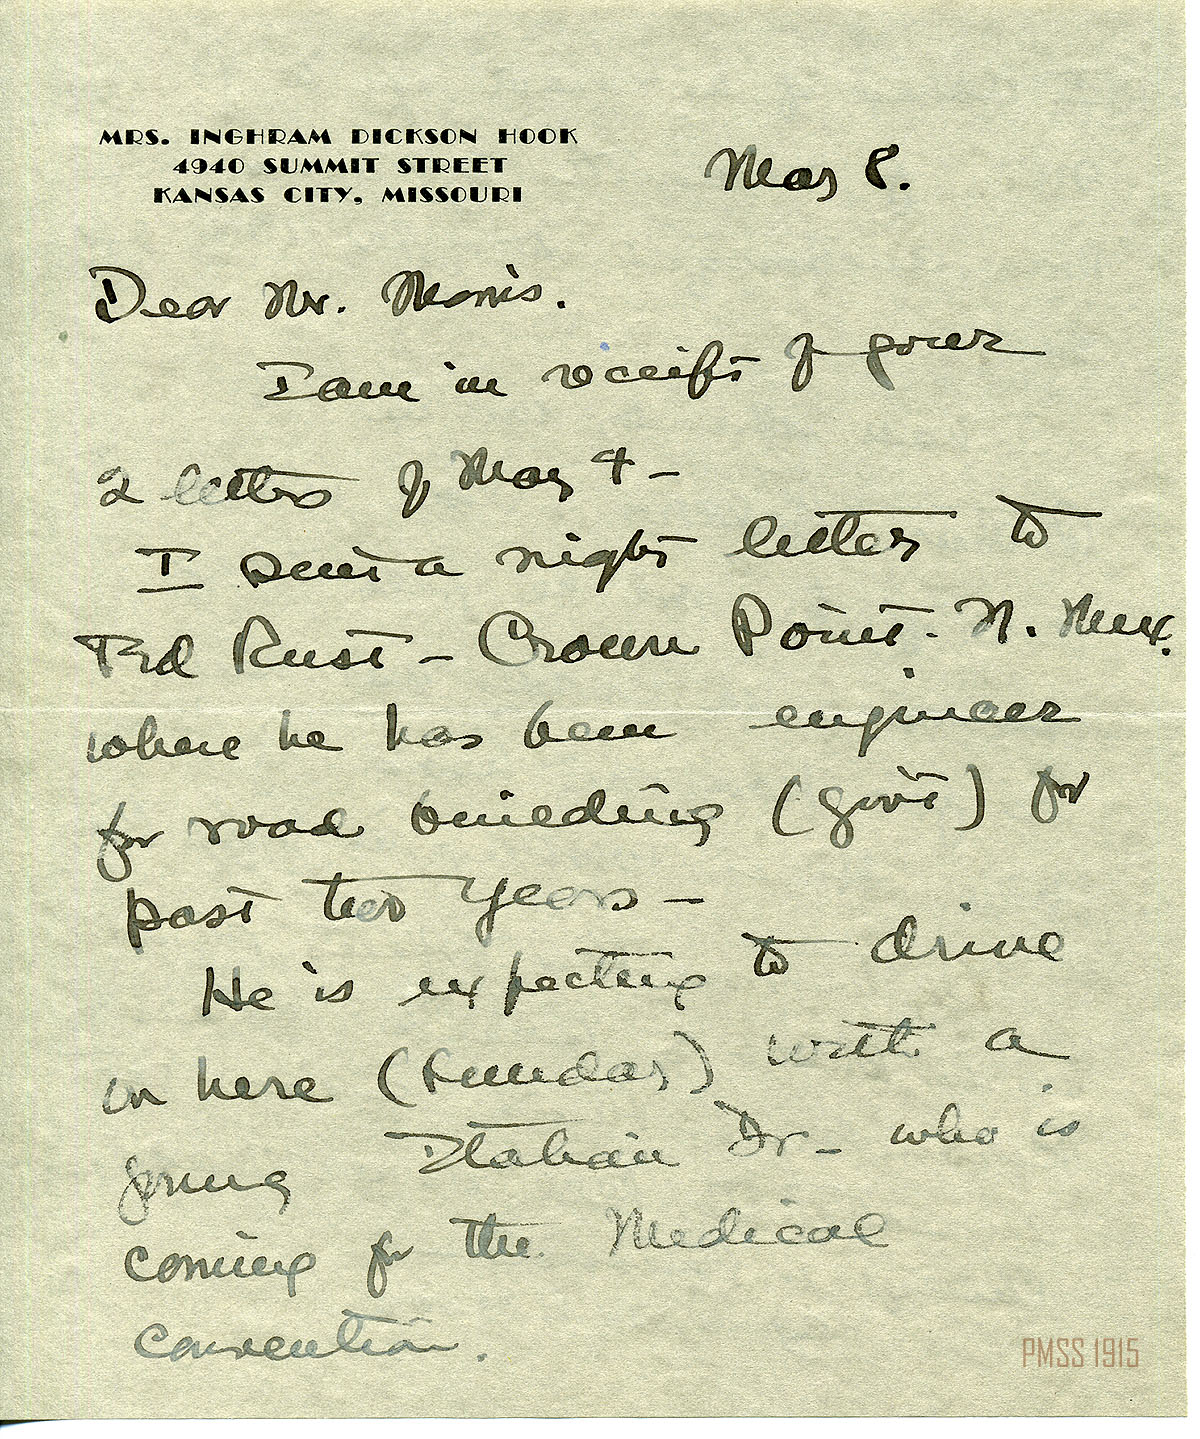 MRS. INGHRAM DICKSON HOOK
4940 SUMMIT STREET
KANSAS CITY, MISSOURI
May 8.
Dear Mr. Morris.
I am in receipt of your
2 letters of May 4 -
I sent a night letter to
Ted Rust - Crown Point. N. Mex.
where he has been engineer
for road building (gov't) for
past two years -
He is expecting to drive
in here (Sunday) with a
young Italian Dr - who is
coming for the Medical
convention.
PMSS 1915